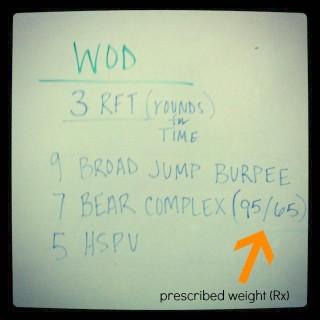 WOD
3 RFT (rounds
for
TIME)
9 BROAD JUMP BURPEE
7 BEAR COMPLEX (95/65)
5 HSPU
prescribed weight (Rx)